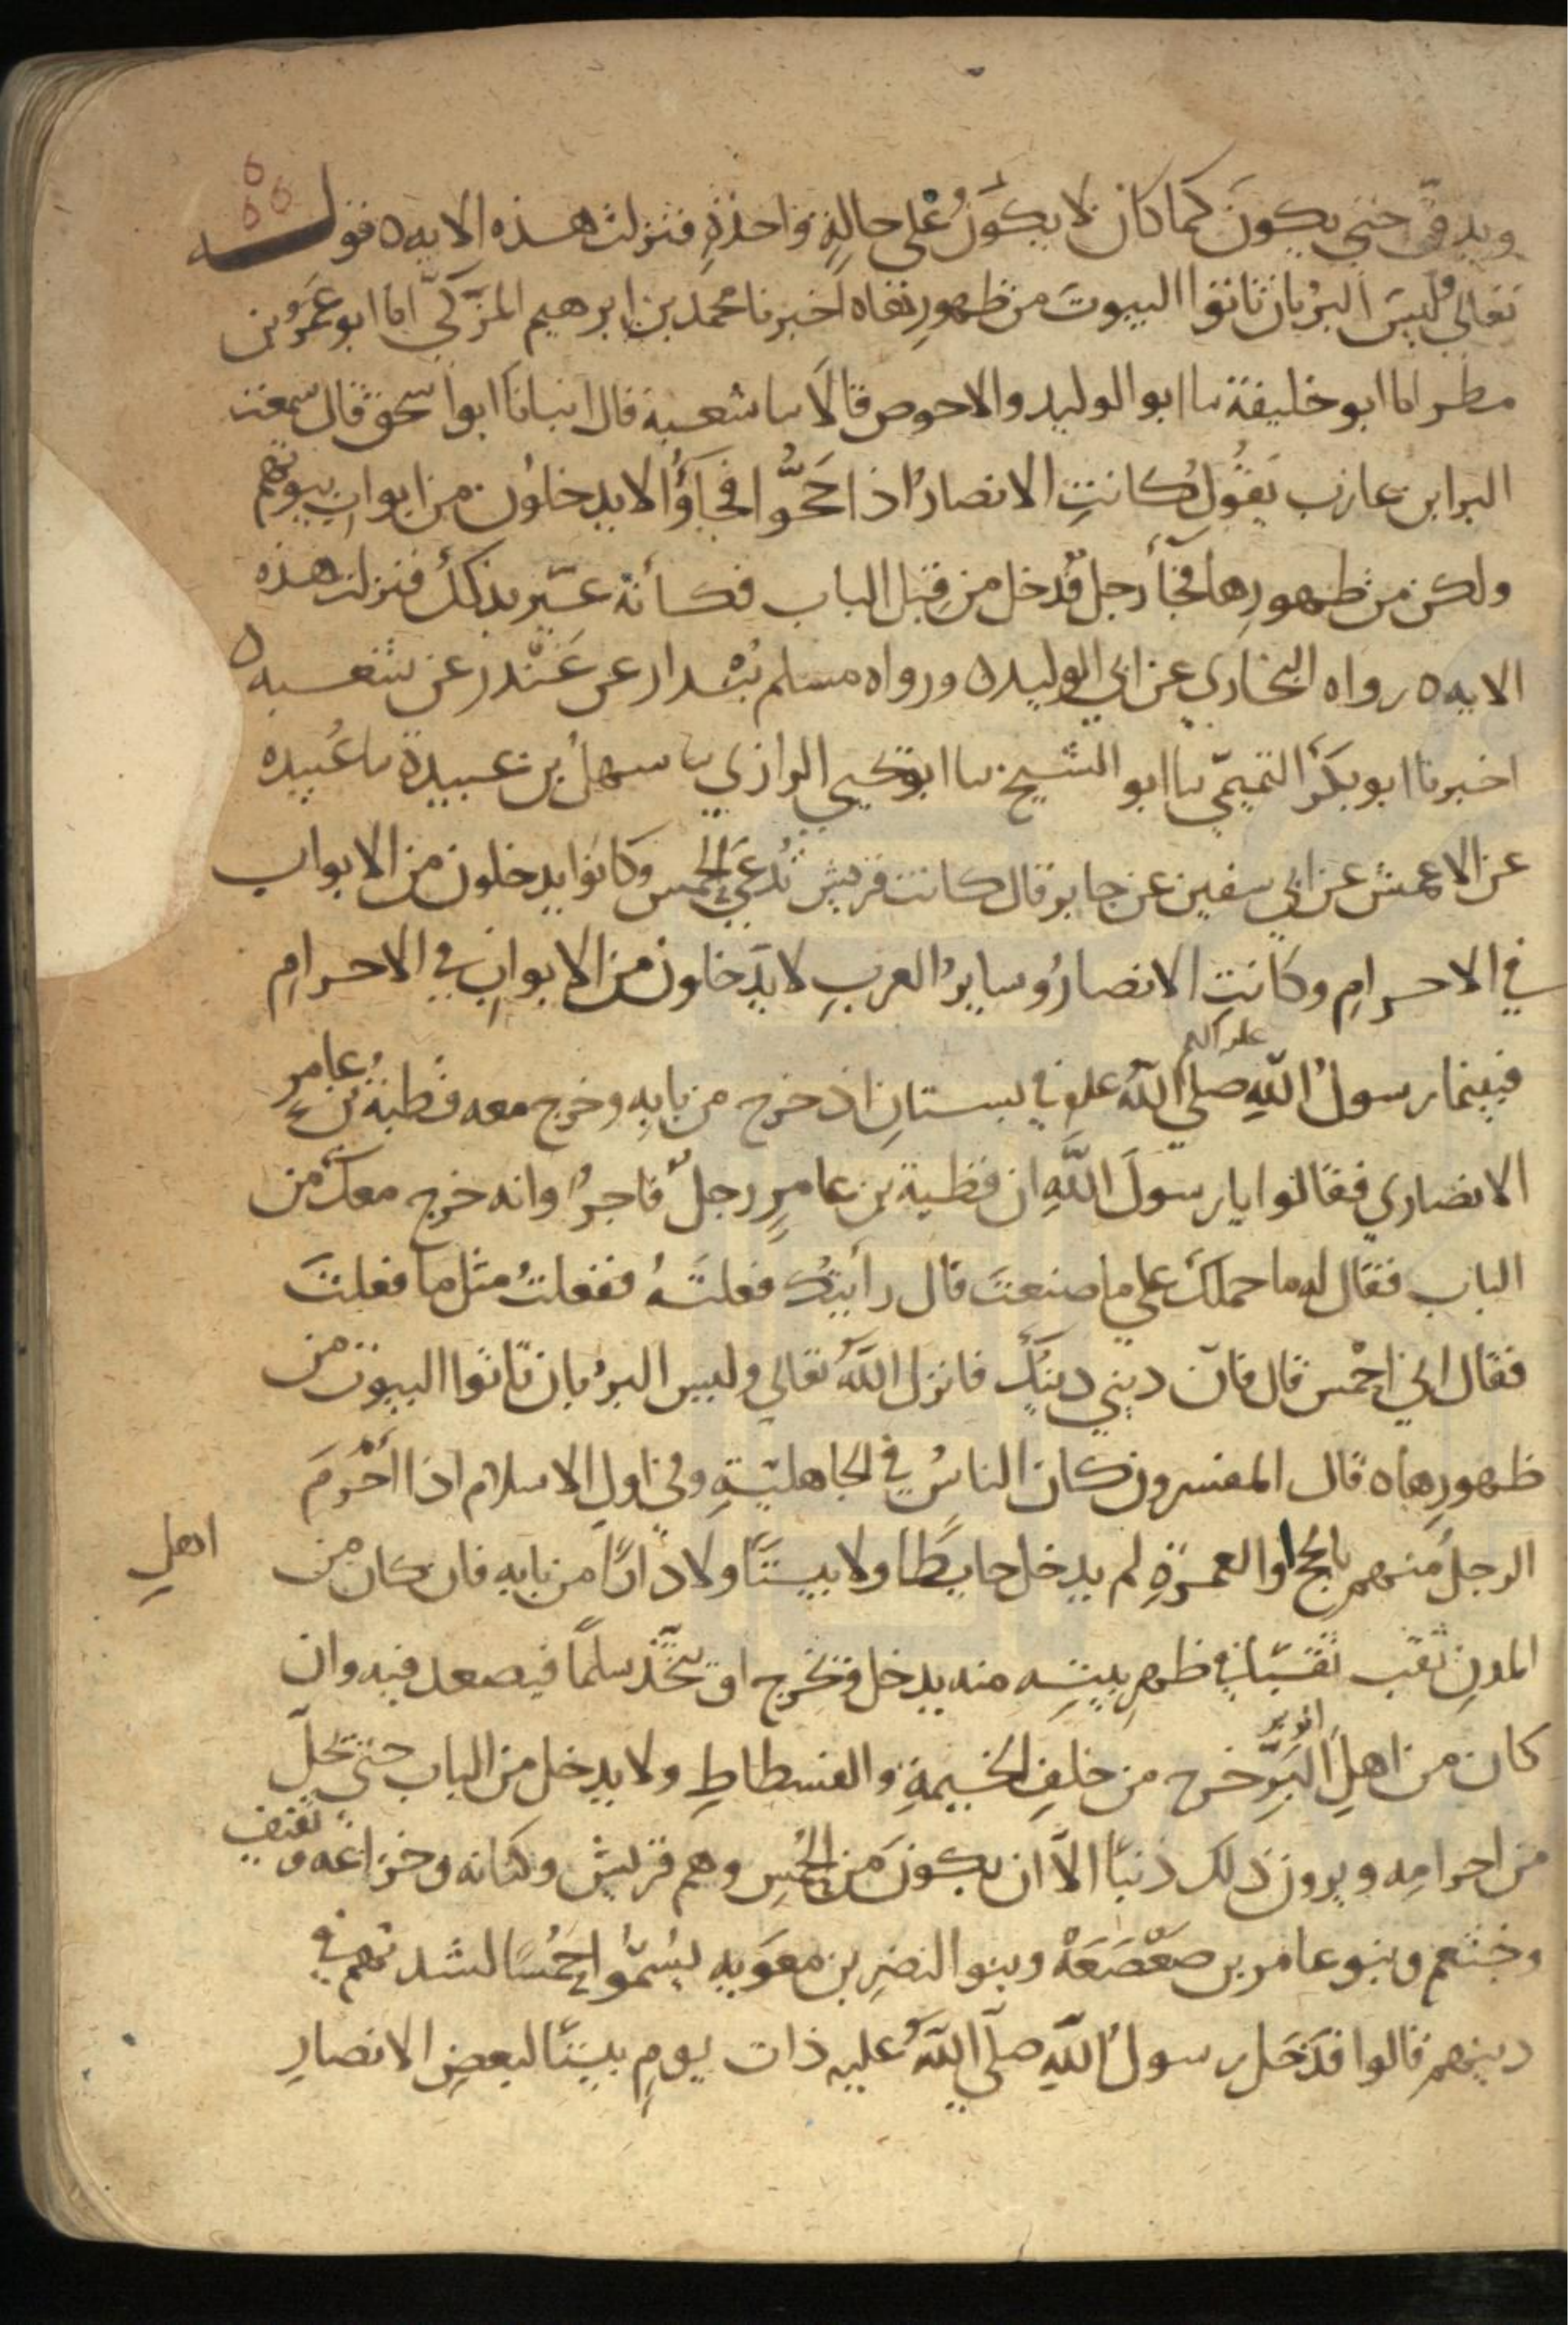 ويدق حتى يكون كما كان لا يكون على حالة واحدة فنزلت هذه الايه ٥ قوله
تعالى وليس البر بان تاتوا البيوت من ظهورها ٥ اخبرنا محمد بن ابرهيم المزكي انا ابو عمرو بن
مطر انا ابو خليفة نا ابو الوليد والاحوص قالا نا شعبة قال انبانا ابو اسحق قال سمعت
البرا بن عازب يقول كانت الانصار اذا حجوا فجاؤا لا يدخلون من ابواب بيوتهم
ولكن من ظهورها فجآ رجل فدخل من قبل الباب فكأنه عير بذلك فنزلت هذه
الايه ٥ رواه البخاري عن ابي الوليد ٥ ورواه مسلم بندار عن غندر عن شعبه ٥
اخبرنا ابو بكر التميمي نا ابو الشيخ نا ابو يحيى الرازي نا سهل بن عبيدة نا عبيده
عن الاعمش عن ابي سفين عن جابر قال كانت قريش تدعى الحمس وكانوا يدخلون من الابواب
في الاحرام وكانت الانصار وساير العرب لا يدخلون من الابواب في الاحرام
فبينما رسول الله صلى الله عليه في بستان اذ خرج من بابه وخرج معه قطبة بن عامر
الانصاري فقالوا يا رسول الله ان قطبة بن عامر رجل فاجر وانه خرج معك من
الباب فقال له ما حملك على ما صنعت قال رأيتك فعلته ففعلت مثل ما فعلت
فقال اني احمس قال فان ديني دينك فانزل الله تعالى وليس البر بان تاتوا البيوت من
ظهورها ٥ قال المفسرون كان الناس في الجاهلية وفي اول الاسلام اذا احرم
الرجل منهم بالحج او العمرة لم يدخل حايطا ولا بيتا ولا دارا من بابه فان كان من اهل
المدن نقب نقبا في ظهر بيته منه يدخل ويخرج او يتخذ سلما فيصعد فيه وان
كان من اهل الوبر خرج من خلف الخيمة والفسطاط ولا يدخل من الباب حتى يحل
من احرامه ويرون ذلك ذنبا الا ان يكون من الحمس وهم قريش وكنانه وخزاعه وثقيف
وخثعم وبنو عامر بن صعصعة وبنو النضر بن معويه يسموا حمسا لشدتهم في
دينهم قالوا فدخل رسول الله صلى الله عليه ذات يوم بيتا لبعض الانصار